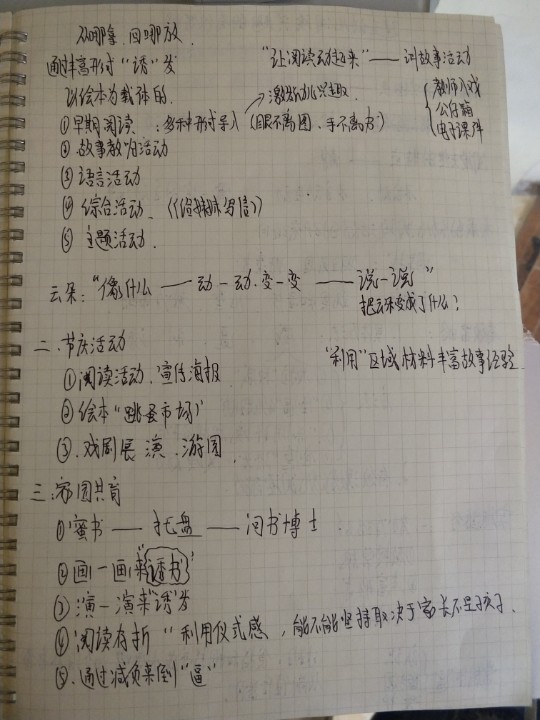 从哪拿,回哪放
通过丰富形式"诱"发 "让阅读动起来"——讲故事活动
以绘本为载体的 教师入戏
激发幼儿兴趣 公仔箱
①早期阅读:多种形式导入(眼不离图、手不离书) 电子课件
②故事教学活动
③语言活动
④综合活动.《给妹妹写信》
⑤主题活动.
云朵:"像什么——动一动.变一变——说一说"
把云朵变成了什么?
二.节庆活动 "利用"区域材料丰富故事经验.
①阅读活动.宣传海报
②绘本"跳蚤市场"
③.戏剧展演.游园.
三.家园共育
①蜜书——托盘——问书博士
②画一画来"诱书"
③演一演来"诱"发
④"阅读存折"利用仪式感,能不能坚持取决于家长不是孩子.
⑤.通过减负来倒"逼"